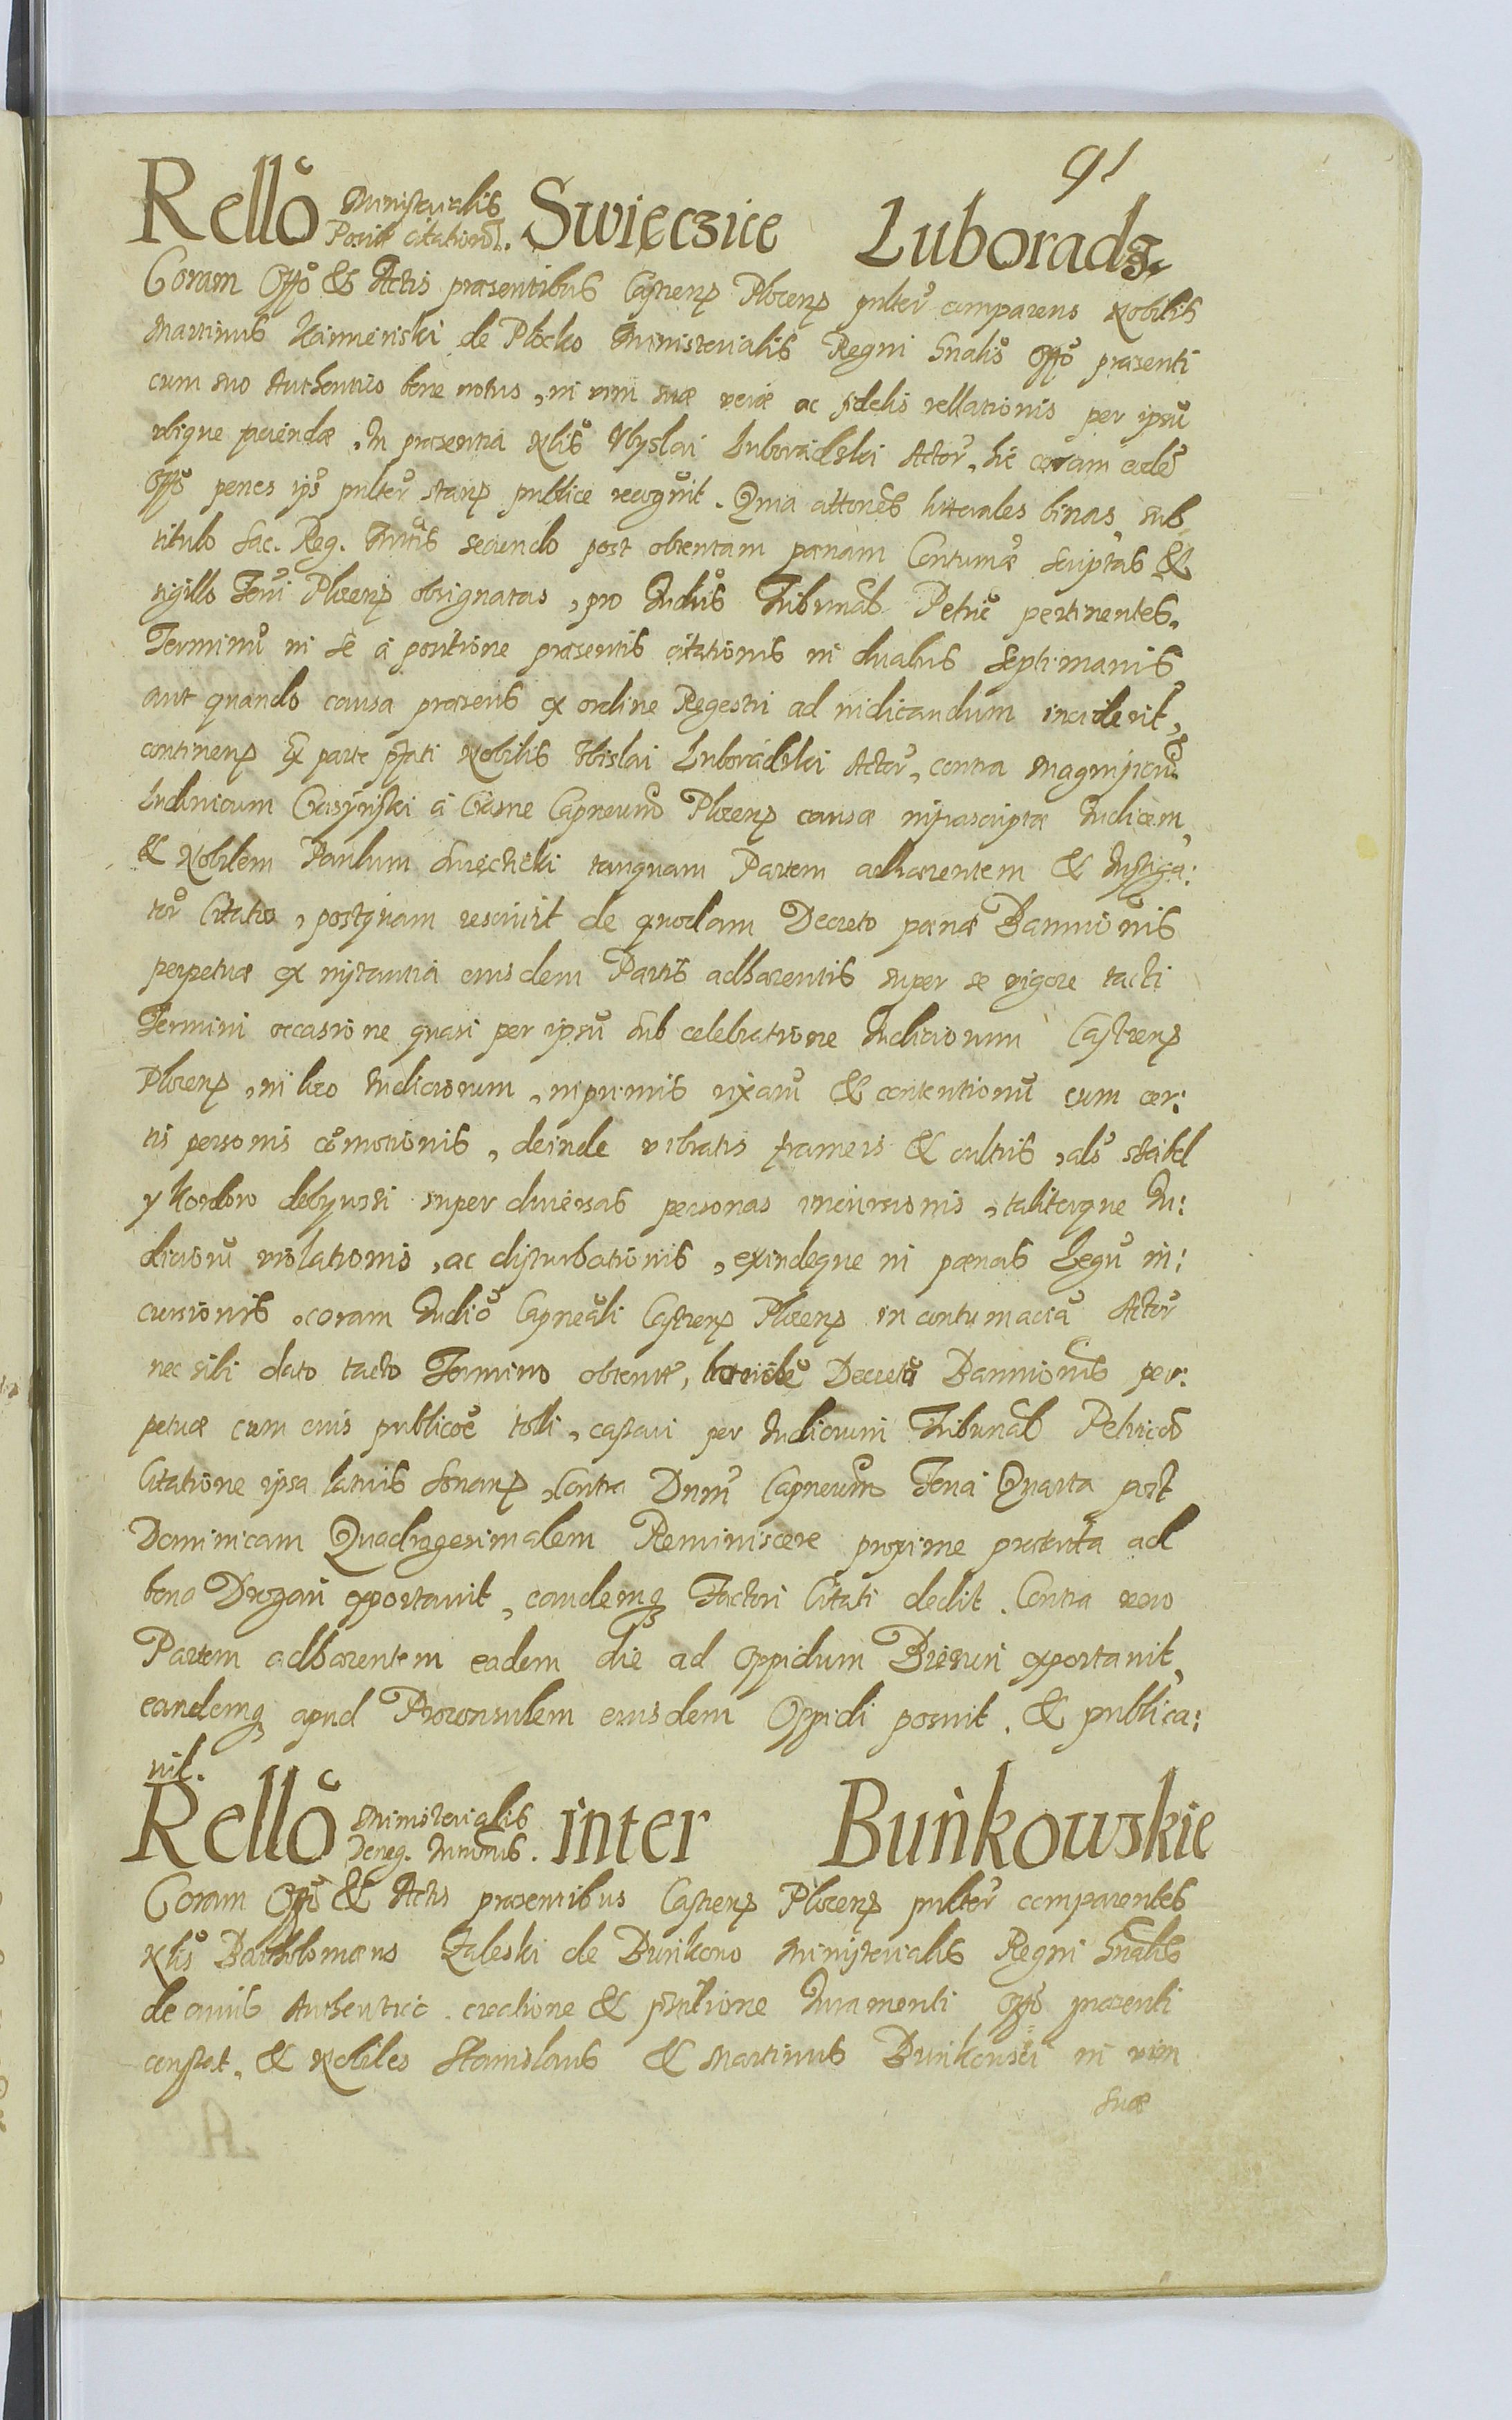 91
Rello Ministerialis Posit citation. Swięczice Luboradz.
Coram Offo & Actis præsentibus Castren Plocen pnlter comparens Nobilis
Martinus Kamieński de Plocko Ministerialis Regni Gnalis Offo præsenti
cum suo Authentico bene notus, in vim suæ veræ ac fidelis rellationis per ipsu
vbique faciendæ, In præsentia Nlis Vbyslai Luboradzki Actor, hic coram eode
Offo penes ips pnlter stan publice recognit. Quia attones literales binas sub
titulo Sac. Reg. Mttis secundo post obtentam pœnam Contumæ scriptas &
sigillo Terri Plocen obsignatas, pro Judiis Tribunal Petric pertinentes,
Terminu in se à positione præsentis citationis in duabus septimanis,
aut quando causa præsens ex ordine Regestri ad iudicandum inciderit,
continen Ex parte pfati Nobilis Vbislai Luboradzki Actor, contra Magnificu
Ludouicum Crasiński à Crasne Capneum Plocen causæ infrascriptæ Judicem,
& Nobilem Paulum Święchcki tanquam Partem adhærentem & Instiga:
tor Citatos, postquam resciuit de quodam Decreto pœnæ Bannionis
perpetuæ ex instantia eiusdem Partis adhærentis super se vigore tacti
Termini occasione quasi per ipsu sub celebratione Judiciorum Castren
Plocen, in loco Judiciorum, inprimis rixaru & contentionu cum cer:
tis personis comotionis, deinde vibratis frameis & cultris, als szabel
y kordow dobywszi super diuersas personas incursionis, taliterque Ju:
dicioru violationis, ac disturbationis, exindeque in pœnas Legu in:
cursionis, coram Judio Capneali Castren Plocen in contumacia Actor
nec sibi dato tacto Termino obtent, Decretu Bannionis per:
petuæ cum eius publicoe tolli, cassari per Judicium Tribunal Petrico
Citatione ipsa latius sonan, Contra Dnm Capneum Feria Quarta post
Dominicam Quadragesimalem Reminiscere proxime præterita ad
bona Drogan exportauit, eandemq Factori Citati dedit. Contra vero
Partem adhærentem eadem die ad Oppidum Biezun exportauit,
eandemq apud Proconsulem eiusdem Oppidi posuit, & publica:
uit.
Rello Ministerialis inter Buńkowskie
Coram Offo & Actis præsentibus Castren Plocen pnlter comparentes
Nlis Bartholomæus Zaleski de Buńkowo Ministerialis Regni Gnalis
de cuius Authentic. creatione & pstitione Juramenti Offo præsenti
constat, & Nobiles Stanislaus & Martinus Buńkowsci in vim
suæ